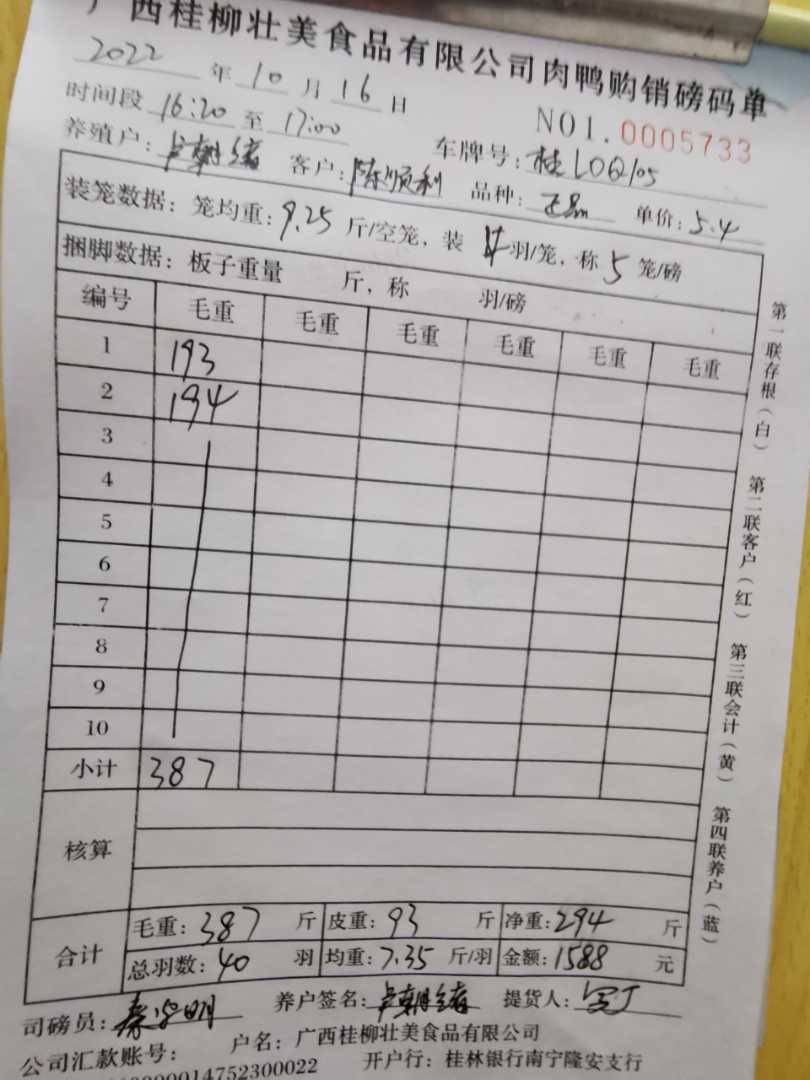 广西桂柳壮美食品有限公司肉鸭购销磅码单
2022 年 10 月 16 日
时间段 16:20 至 17:00 NO1.0005733
养殖户: 卢朝绪 客户: 陈顺利 车牌号: 桂L0Q105
品种: 正品 单价: 5.4
装笼数据: 笼均重: 9.25 斤/空笼, 装 4 羽/笼, 称 5 笼/磅
捆脚数据: 板子重量 斤, 称 羽/磅
编号 毛重 毛重 毛重 毛重 毛重 毛重
1 193
2 194
3
4
5
6
7
8
9
10
小计 387
核算
合计 毛重: 387 斤 皮重: 93 斤 净重: 294 斤
总羽数: 40 羽 均重: 7.35 斤/羽 金额: 1588 元
司磅员: 养户签名: 卢朝绪 提货人:
公司汇款账号: 户名: 广西桂柳壮美食品有限公司
14752300022 开户行: 桂林银行南宁隆安支行
第一联存根(白) 第二联客户(红) 第三联会计(黄) 第四联养户(蓝)